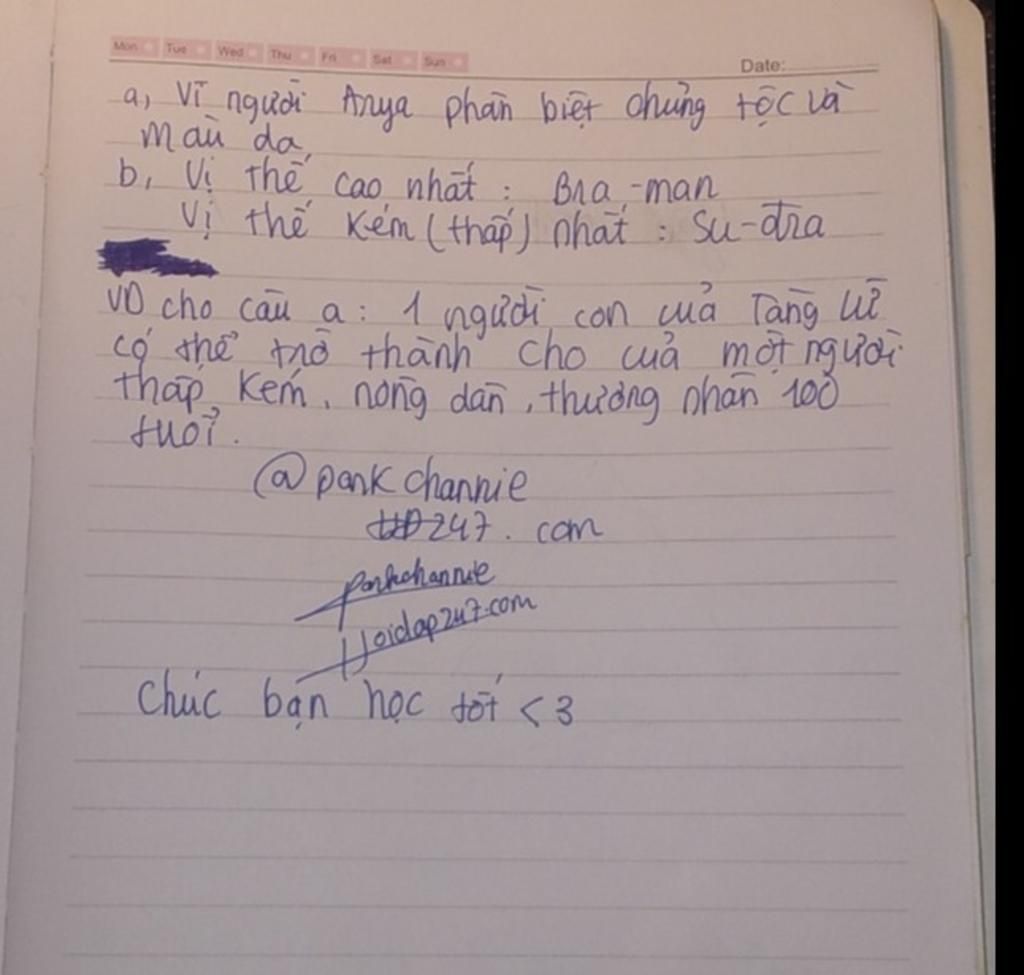 Mon Tue Wed Thu Fri Sat Sun
Date:
a, Vì người Arya phân biệt chủng tộc và
màu da
b, Vị thế cao nhất : Bra-man
Vị thế kém (thấp) nhất : Su-đra
VD cho câu a : 1 người con của Tăng lữ
có thể trở thành cho của một người
thấp kém, nông dân, thương nhân 100
tuổi.
@parkchannie
247.com
parkchannie
Hoidap247.com
Chúc bạn học tốt <3